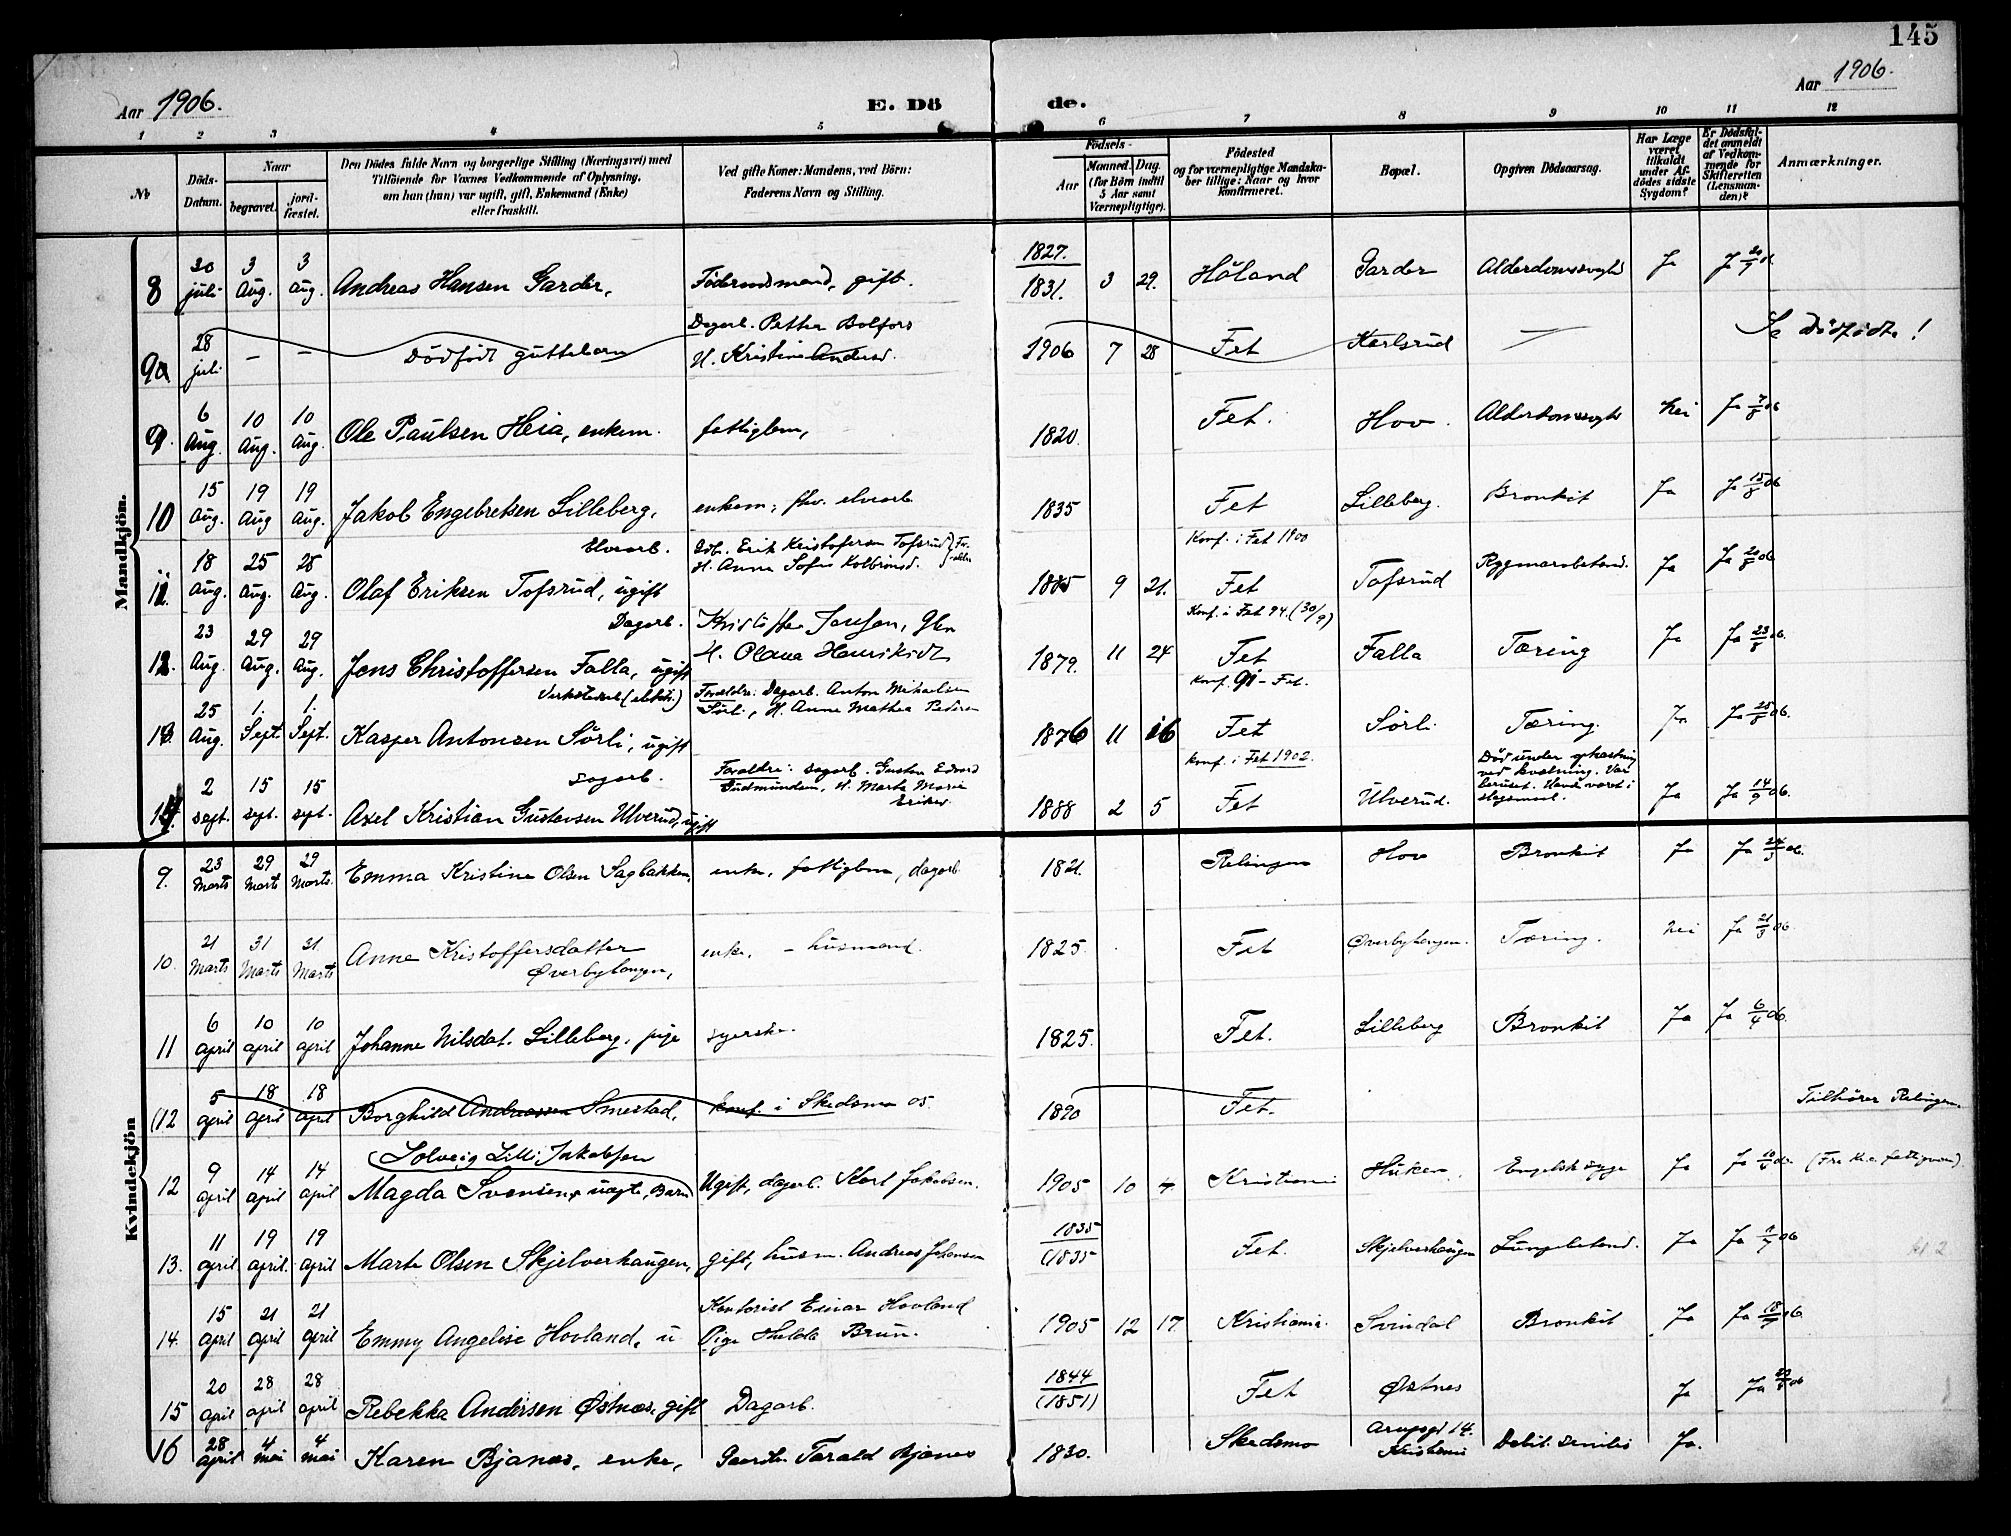 145
Aar 1906.
E. Dö de.
Aar 1906.
1 2 3 4 5 6 7 8 9 10 11 12
No
Döds-Datum.
Naar
begravet.
jord-fæstet.
Den Dödes fulde Navn og borgerlige Stilling (Næringsvei) med
Tilföiende for Voxnes Vedkommende af Oplysning,
om han (hun) var ugift, gift, Enkemand (Enke)
eller fraskilt.
Ved gifte Koner: Mandens, ved Börn:
Faderens Navn og Stilling.
Födsels-
Aar
Maaned. Dag.
(for Börn indtil
5 Aar samt
Værnepligtige).
Födested
og for værnepligtige Mandska-
ber tillige: Naar og hvor
konfirmeret.
Bopæl.
Opgiven Dödsaarsag.
Har Læge
været
tilkaldt
under Af-
dödes sidste
Sygdom?
Er Dödsfal-
det anmeldt
af Vedkom-
mende for
Skifteretten
(Lensman-
den)?
Anmærkninger.
Mandkjön.
8 30 juli 3 Aug. 3 aug. Andreas Hansen Garder, Föderaadsmand, gift. 1827. 1831. 3 29. Höland Garder Alderdomssvaghed Ja Ja
9a 28 juli — — Dödfödt guttebarn Dagarb. Petter Bolfors H. Kristine Andersd. 1906 7 28 Fet Karlsrud — Se Dödfödte!
9. 6 Aug. 10 Aug. 10 Aug. Ole Paulsen Heia, enkem. fattiglem, 1820. Fet. Hov. Alderdomssvagh nei Ja 7/8 06
10 15 aug. 19 Aug 19 Aug. Jakob Engebretsen Lilleberg, enkem; fhv. elvearb. 1835 Fet Lilleberg. Bronkit Ja Ja 15/8 06
11. 18 Aug. 25 Aug. 25 Aug. Elvearb. Olaf Eriksen Tofsrud, ugift Erik Kristofersen Tofsrud H. Anna Sofie 1885 9 21. Konf. i Fet 1900 Fet Tofsrud Rygmarvsbetænd. Ja Ja 20/8 06
12. 23 Aug. 29 Aug. 29 Aug. Dagarb. Jens Christoffersen Falla, ugift 1879. 11 24 Konf. i Fet 94. (30/9) Fet Falla Tæring Ja Ja 23/8 06.
13. 25 Aug. 1. Sept. 1. Sept. Kasper Antonsen Sörli, ugift Forældre: Dagarb. Anton Mikaelsen Sörli, H. Anne Mathea 1876 11 16 Konf. 91 - Fet. Fet Sörli Tæring. Ja Ja 25/8 06.
14. 2 sept. 15 sept. 15 sept. Sagarb. Axel Kristian Gustavsen Ulverud, ugift Forældre: Sagarb. Gustav Edvard Gudmundsen, H. Marte Marie Eriksd. 1888 2 5 Konf. i Fet 1902. Fet Ulverud. Död under opkastning ved kvælning. Var beruset. Havde været i slagsmaal. Ja Ja 14/9 06.
Kvindekjön
9. 23 Marts 29 Marts 29 Marts. Emma Kristine Olsen Sagbakken, enke, fattiglem, dagarb. 1821. Relingen Hov Bronkit Ja Ja 24/3 06.
10. 21 Marts 31 Marts 31 Marts Anne Kristoffersdatter Øverbyhaugen, enke, - husmand. 1825. Fet Øverbyhaugen. Tæring. nei Ja 21/3 06.
11 6 april 10 april 10 april Johanne Nilsdat. Lilleberg, pige syerske. 1825. Fet. Lilleberg Bronkit Ja Ja 6/4 06.
(12 5 april 18 april 18 april Borghild Andreassen Smestad, konf. i Skedsmo 05. 1890 Fet. Tilhörer Relingen.
12 9 april 14 april 14 april Solveig Lilli Jakobsen Magda Svensen, uægte Barn Ugift, dagarb. Karl Jakobsen. 1905 10 4. Kristiania Huken. Engelsk syge Ja Ja (Fra Kr.a fattigvæsen)
13. 11 april 19 april. 19 april Marte Olsen Skjelverhaugen, gift, husm. Andreas Johansen 1835 (1835 Fet. Skjelverhaugen Lungebetænd. Ja Ja
14. 15 april 21 april 21 april Emmy Angelise Hovland, u Kontorist Einar Hovland Pige Hulda Brun. 1905 12 17 Kristiania. Svindal Bronkit Ja Ja
15 20 april 28 april 28 april Rebekka Andersen Østnæs, gift Dagarb. 1844 (1851) Fet Østnes Ja Ja
16 28 april 4 mai 4 mai Karen Bjanæs, enke, Gaardbr. Tarald Bjanes 1830. Skedsmo Arupsgd 14. Kristiania Debil. senilis Ja.